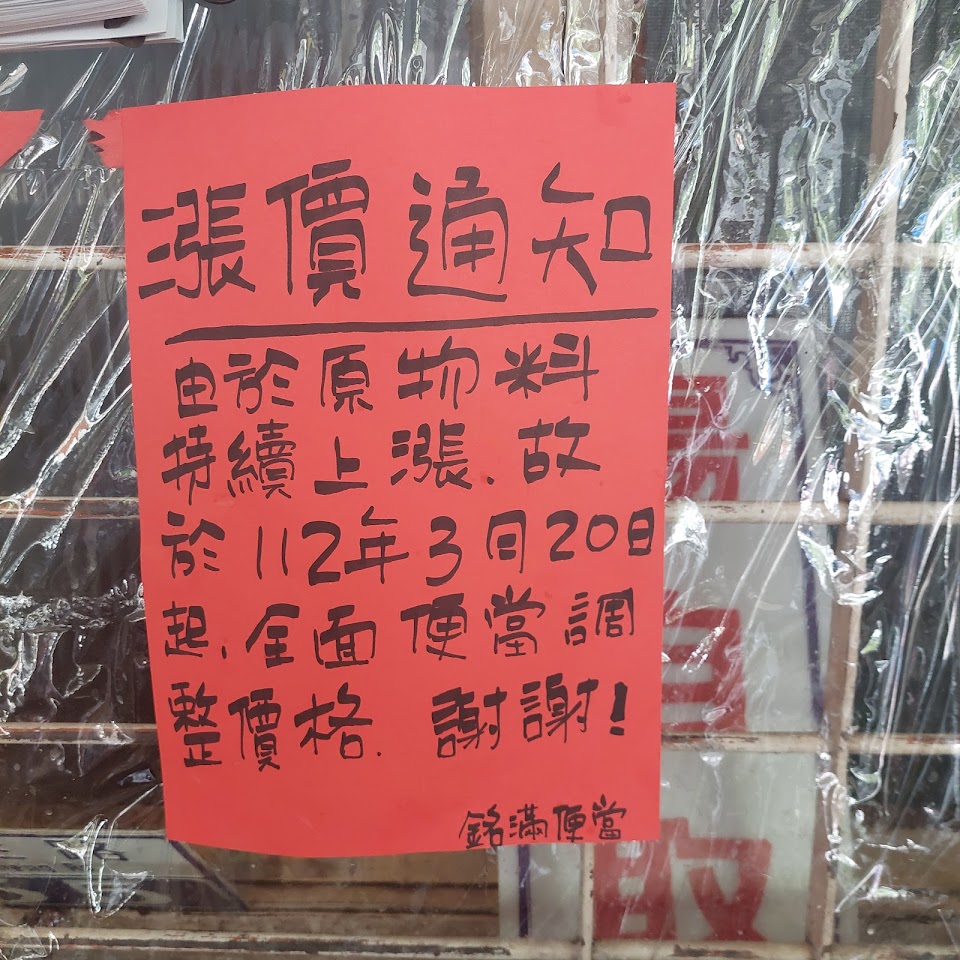 漲價通知
由於原物料
持續上漲.故
於112年3月20日
起.全面便當調
整價格. 謝謝!
銘滿便當
自
取